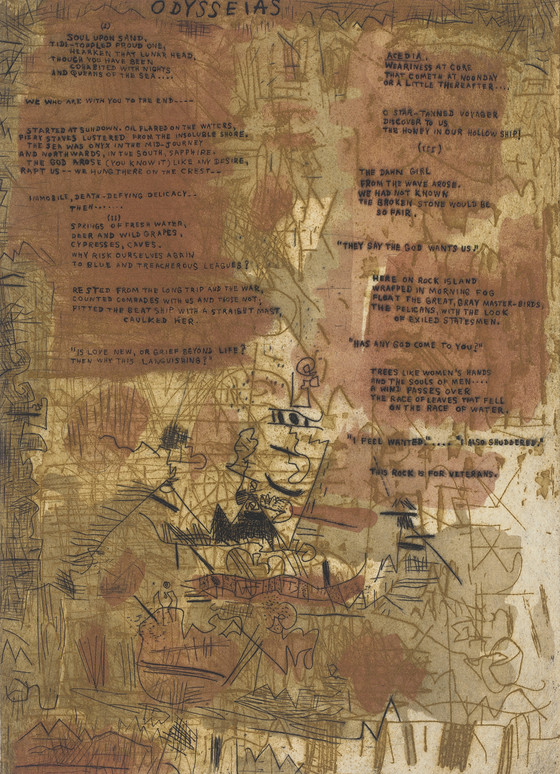 ODYSSEIAS
(I)
SOUL UPON SAND,
TIDE-TOPPLED PROUD ONE,
HEARKEN THAT LUNAR HEAD,
THOUGH YOU HAVE BEEN
COHABITED WITH NIGHTS
AND QURANS OF THE SEA....
WE WHO ARE WITH YOU TO THE END----
STARTED AT SUNDOWN. OIL FLARED ON THE WATERS,
FIERY STAVES LUSTERED FROM THE INSOLUBLE SHORE,
THE SEA WAS ONYX IN THE MID-JOURNEY
AND NORTHWARDS, IN THE SOUTH, SAPPHIRE.
THE GOD AROSE (YOU KNOW IT) LIKE ANY DESIRE,
RAPT US -- WE HUNG THERE ON THE CREST--
IMMOBILE, DEATH-DEFYING DELICACY--
THEN.......
(II)
SPRINGS OF FRESH WATER,
DEER AND WILD GRAPES,
CYPRESSES, CAVES.
WHY RISK OURSELVES AGAIN
TO BLUE AND TREACHEROUS LEAGUES?
RESTED FROM THE LONG TRIP AND THE WAR,
COUNTED COMRADES WITH US AND THOSE NOT,
FITTED THE BEAT SHIP WITH A STRAIGHT MAST,
CAULKED HER.
"IS LOVE NEW, OR GRIEF BEYOND LIFE?
THEN WHY THIS LANGUISHING?"
ACEDIA,
WEARINESS AT CORE
THAT COMETH AT NOONDAY
OR A LITTLE THEREAFTER....
O STAR-TANNED VOYAGER
DISCOVER TO US
THE HONEY IN OUR HOLLOW SHIP!
(III)
THE DAMN GIRL
FROM THE WAVE AROSE.
WE HAD NOT KNOWN
THE BROKEN STONE WOULD BE
SO FAIR.
"THEY SAY THE GOD WANTS US."
HERE ON ROCK ISLAND
WRAPPED IN MORNING FOG
FLOAT THE GREAT, GRAY MASTER-BIRDS,
THE PELICANS, WITH THE LOOK
OF EXILED STATESMEN.
"HAS ANY GOD COME TO YOU?"
TREES LIKE WOMEN'S HANDS
AND THE SOULS OF MEN....
A WIND PASSES OVER
THE RACE OF LEAVES THAT FELL
ON THE RACE OF WATER.
"I FEEL WANTED".... "I ALSO SHUDDERED."
THIS ROCK IS FOR VETERANS.